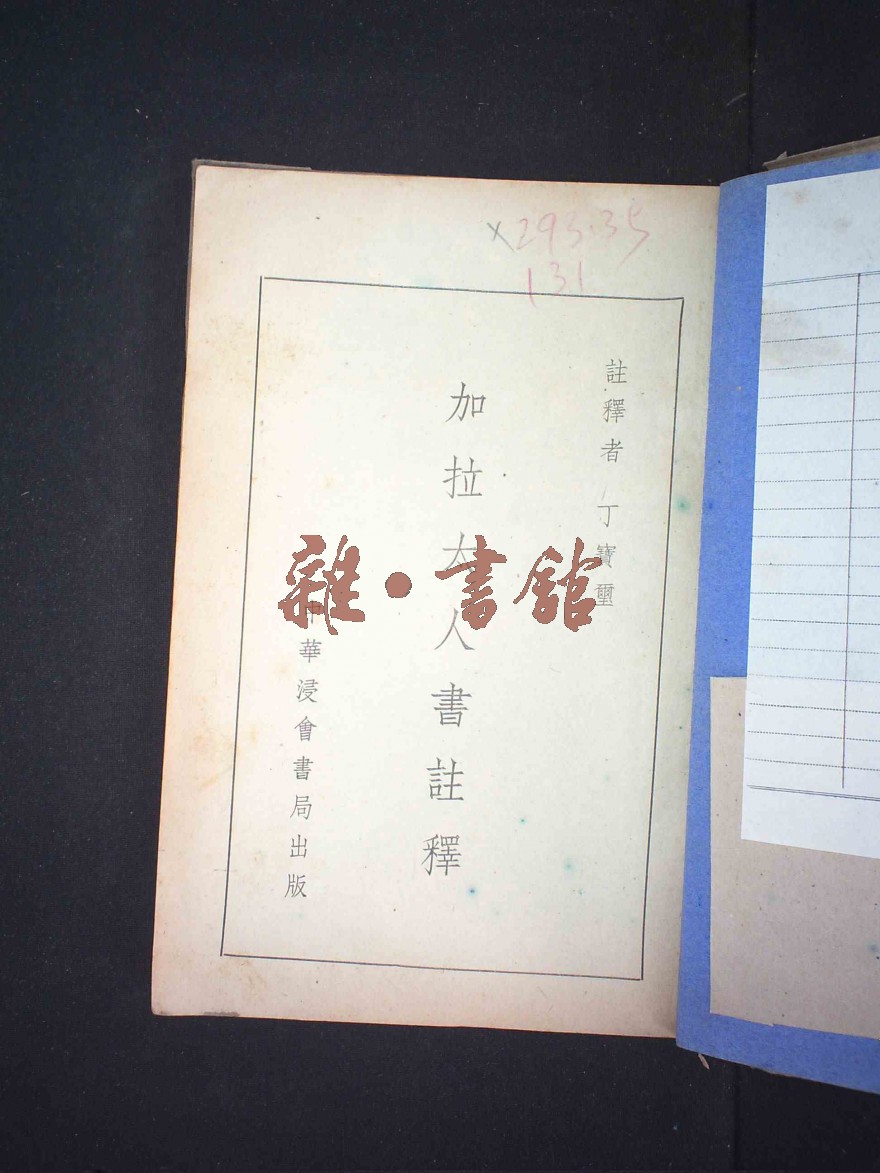 X293.35
131
註釋者 丁寶璽
加拉太人書註釋
中華浸會書局出版
雜·書館